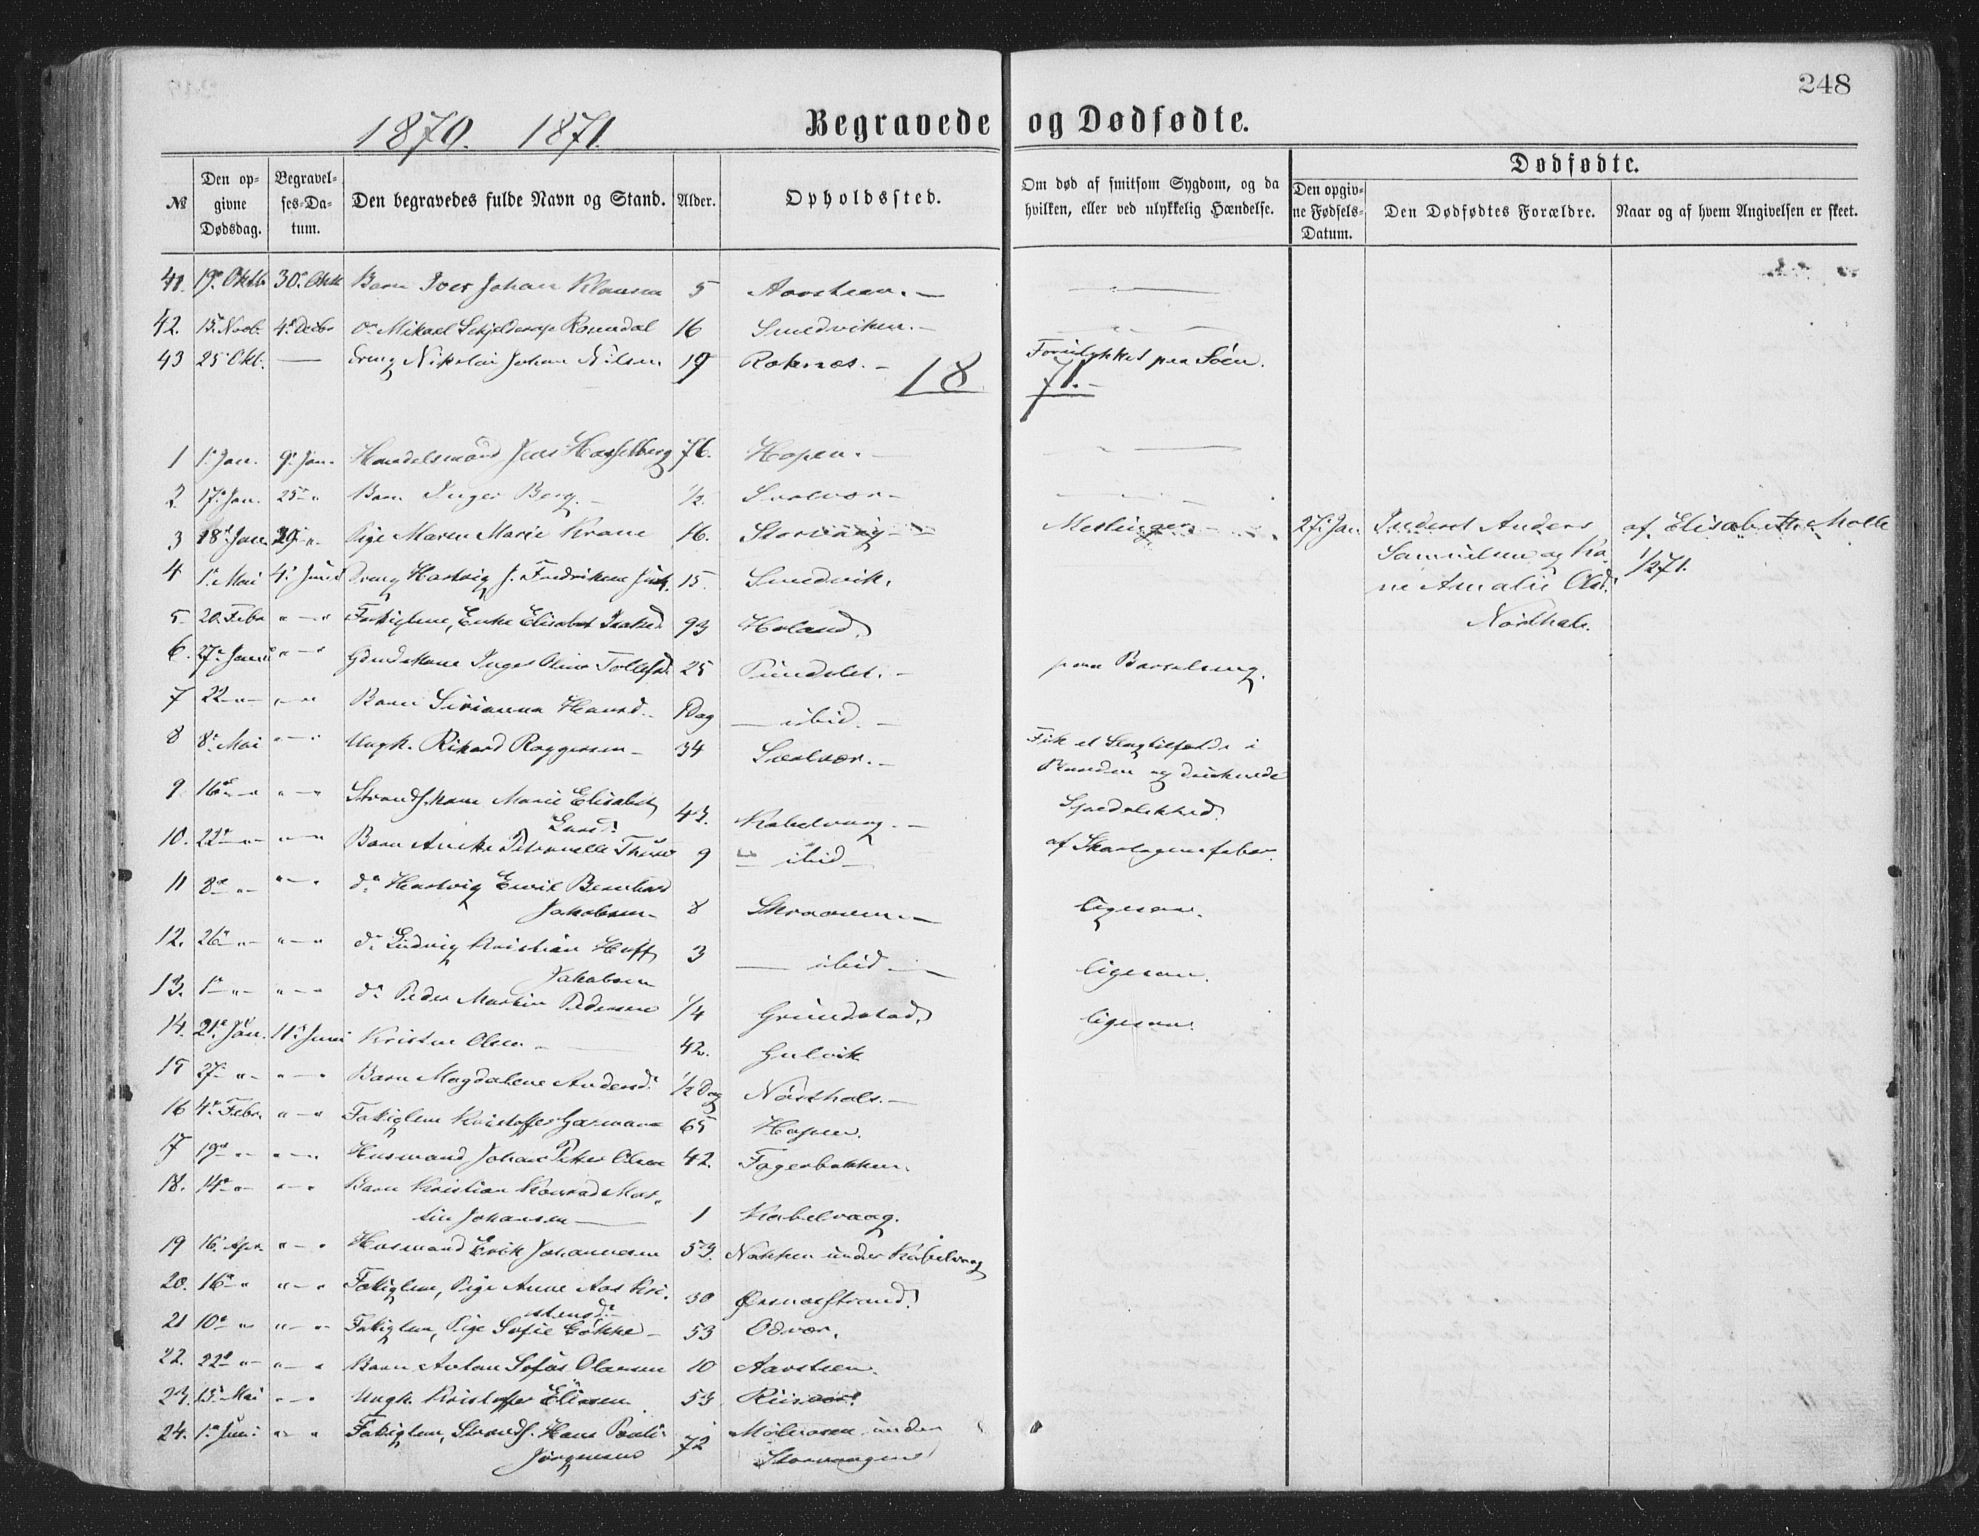 248
1870. 1871.
Begravede og Dødfødte.
№
Den opgivne Dødsdag.
Begravelses-Datum.
Den begravedes fulde Navn og Stand.
Alder.
Opholdssted.
Om død af smitsom Sygdom, og da hvilken, eller ved ulykkelig Hændelse.
Dødfødte.
Den opgivne Fødsels-Datum.
Den Dødfødtes Forældre.
Naar og af hvem Angivelsen er skeet.
41. 19de Oktb. 30te Oktb Barn Iver Johan Klausen 5 Aarsteen. —
42. 15de Novb. 4de Decbr do Mikael Schjelderup Rouvdal 16 Smedviken. —
43 25 Okt. — Dreng Nikolai Johan Nilsen 19 Roknæs. — Forulykket paa Søen.
18 71. —
1 1te Jan. 9de Jan. Handelsmand Jens Hasselberg 76. Hopen. —
2 17de Jan. 25de " Barn Inger Berg. — ½. Svolvær —
3 18de Jan. 29de " Pige Maren Marie Krane 16. Storvaag — Meslinger — 27de Jan. Inderst Anders af Elisabeth Molle
Samuelsen og Ka- 1/2 71.
ne Amalie Olsd.
Nordhals.
4 1te Mai 4de Juni Dreng Hartvig J. Fredriksen 15. Smedvik.
5 20. Febr " — " Fatiglem, Enke Elisabet Isaksd. 93 Holand.
6. 27de Januar " — " Gaardskone Inger Oline Tollefsd. 25 Pundslet. — paa Barselseng.
7 22 — " — " — " Barn Sirianna Hansd. Dag — ibid. —
8 8de Mai " — " Ungk. Rikard Roggesen — 34 Svolvær. — Fik et Slagtilfælde i
Baaden og druknede
9. 16de — " " — " Strands. kone Marie Elisabet
43. Kabelvaag. — Spedalskhed.
10. 22de — " — " — " Barn Anike Petronelle 9 — ibid — af Skarlagensfeber.
11 8de " — " — " do Hartvig Emil Bernhard
Jakobsen — 8 Skraaven — ligesaa.
12. 26de " — " — " do Ludvig Kristian Hoff
Jakobsen 3 — ibid — ligesaa.
13. 1te — " — " — " do Peder Martin Pedersen ¼ Grundstad. ligesaa.
14. 21de Jan. 11te Juni Kristen Olsen — 42. Gulvik
15 27de " — " — " Barn Magdalene Andersd. ½ Dag Nordhals. —
16 4de Febr. " — " Fatiglem Kristoffer 65 Hopen.
17 19de " — " — " Husmand Johan Peter Olsen 42. Fagerbakken.
18. 14de — " " — " Barn Kristian Konrad Mar-
tin Johansen — 1 Kabelvaag.
19 16de Apr. " — " Husmand Erik Johannesen 53. Nøkken under Kabelvaag
20. 16de — " " — " Fatiglem, Pige Anne Aas Kri-
stensd. — 30 Ørsnæsstrand.
21 10de " — " — " Fatiglem, Pige Sofie Gøkke — 53 Odvær.
22. 22de " — " — " Barn Anton Sofus Olausen 10 Aarsteen.
23. 15de Mai " — " Ungk. Kristoffer Eliasen 53 Risvær.
24. 1te Juni " — " Fatiglem, Strands. Hans Pauli 72 Molrosen under
Jørgensen Storvaagen